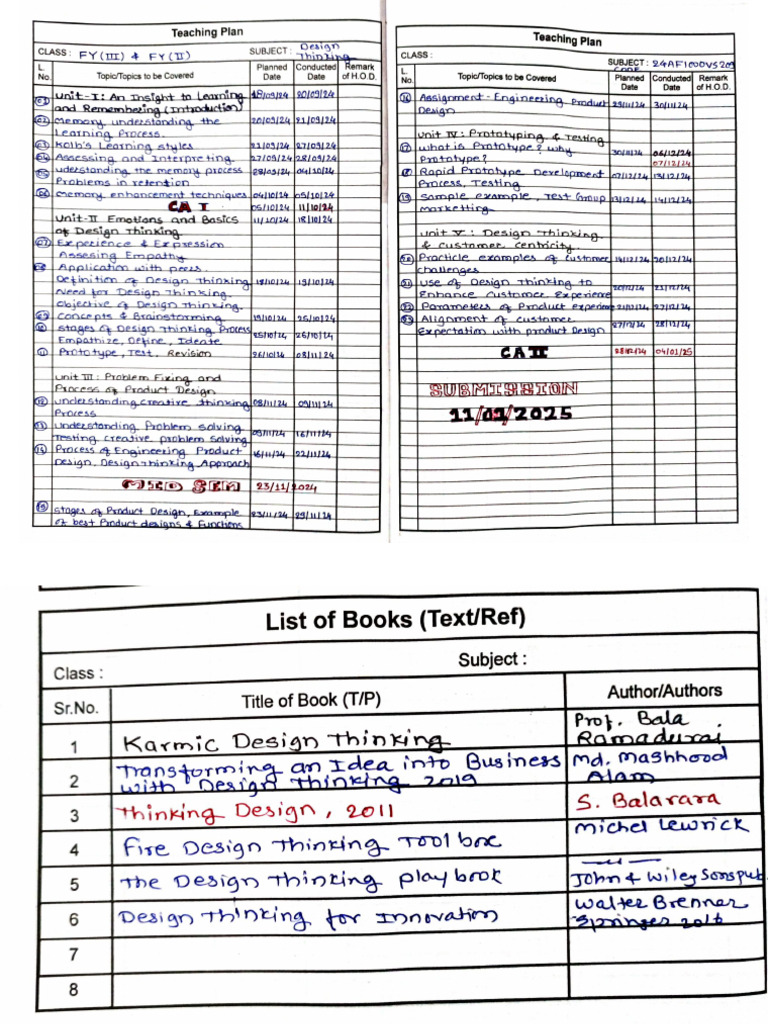 Teaching Plan
CLASS : FY (III) & FY (II) SUBJECT : Design Thinking
L. No. Topic/Topics to be Covered Planned Date Conducted Date Remark of H.O.D.
01 Unit-I: An Insight to Learning 18/09/24 20/09/24
and Remembering (Introduction)
02 Memory, understanding the 20/09/24 21/09/24
Learning Process.
03 Kolb's Learning styles 21/09/24 27/09/24
04 Assessing and Interpreting. 27/09/24 28/09/24
05 uderstanding the memory process 28/09/24 04/10/24
Problems in retention
06 memory enhancement techniques 04/10/24 05/10/24
CA I 05/10/24 11/10/24
Unit-II Emotions and Basics 11/10/24 18/10/24
of Design Thinking.
07 Experience & Expression
Assesing Empathy
08 Application with peers.
Definition of Design Thinking 18/10/24 19/10/24
Need for Design Thinking.
Objective of Design Thinking.
09 Concepts & Brainstorming 19/10/24 25/10/24
10 stages of Design Thinking Process 25/10/24 26/10/24
Empathize, Define, Ideate
11 Prototype, Test, Revision 26/10/24 08/11/24
unit III: Problem Fixing and
Process of Product Design
12 understanding creative thinking 08/11/24 09/11/24
Process
13 understanding Problem solving
Testing creative problem solving 09/11/24 16/11/24
14 Process of Engineering Product 16/11/24 22/11/24
Design, Design Thinking Approach
MID SEM 23/11/2024
15 stages of Product Design, Example 23/11/24 29/11/24
of best Product designs & Functions
Teaching Plan
CLASS : SUBJECT : 24AF1000VS209
CODE
L. No. Topic/Topics to be Covered Planned Date Conducted Date Remark of H.O.D.
16 Assignment - Engineering Product 29/11/24 30/11/24
Design
unit IV: Prototyping & Testing
17 what is Prototype? why 30/11/24 06/12/24
Prototype? 07/12/24
18 Rapid Prototype Development 07/12/24 13/12/24
Process, Testing
19 sample example, Test Group 13/12/24 14/12/24
marketting.
unit V: Design Thinking
& customer centricity.
20 Practicle examples of customer 14/12/24 20/12/24
challenges
21 use of Design Thinking to 20/12/24 21/12/24
Enhance Customer Experience
22 Parameters of Product experience 21/12/24 27/12/24
23 Alignment of customer 27/12/24 28/12/24
Expectation with product Design
CA II 28/12/24 04/01/25
SUBMISSION
11/01/2025
List of Books (Text/Ref)
Class : Subject :
Sr.No. Title of Book (T/P) Author/Authors
1 Karmic Design Thinking Prof. Bala Ramadurai
2 Transforming an Idea into Business with Design Thinking 2019 Md. Mashhood Alam
3 Thinking Design, 2011 S. Balarara
4 Fire Design Thinking Toolbox Michel Lewrick
5 The Design Thinking playbook John & Wiley Sons pub
6 Design Thinking for Innovation Walter Brenner Springer 2016
7
8